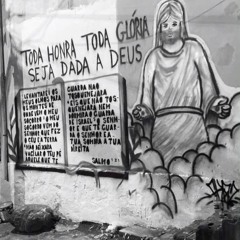 TODA HONRA TODA GLÓRIA
SEJA DADA A DEUS
LEVANTAREI OS
MEUS OLHOS PARA
OS MONTES DE
ONDE VEM O MEU
SOCORRO O MEU
SOCORRO VEM DO
SENHOR QUE FEZ
O CEU E A TERRA
NÃO DEIXARÁ
VACILAR O TEU PÉ
GUARDA NÃO
EIS QUE NÃO TOS
QUENEJARÁ NEM
DORMIRÁ O GUARDA
DE ISRAEL O SENHO
RE QUE TE GUAR
DA O SENHOR É A
TUA SOMBRA A TUA
DIREITA
SALMO 121